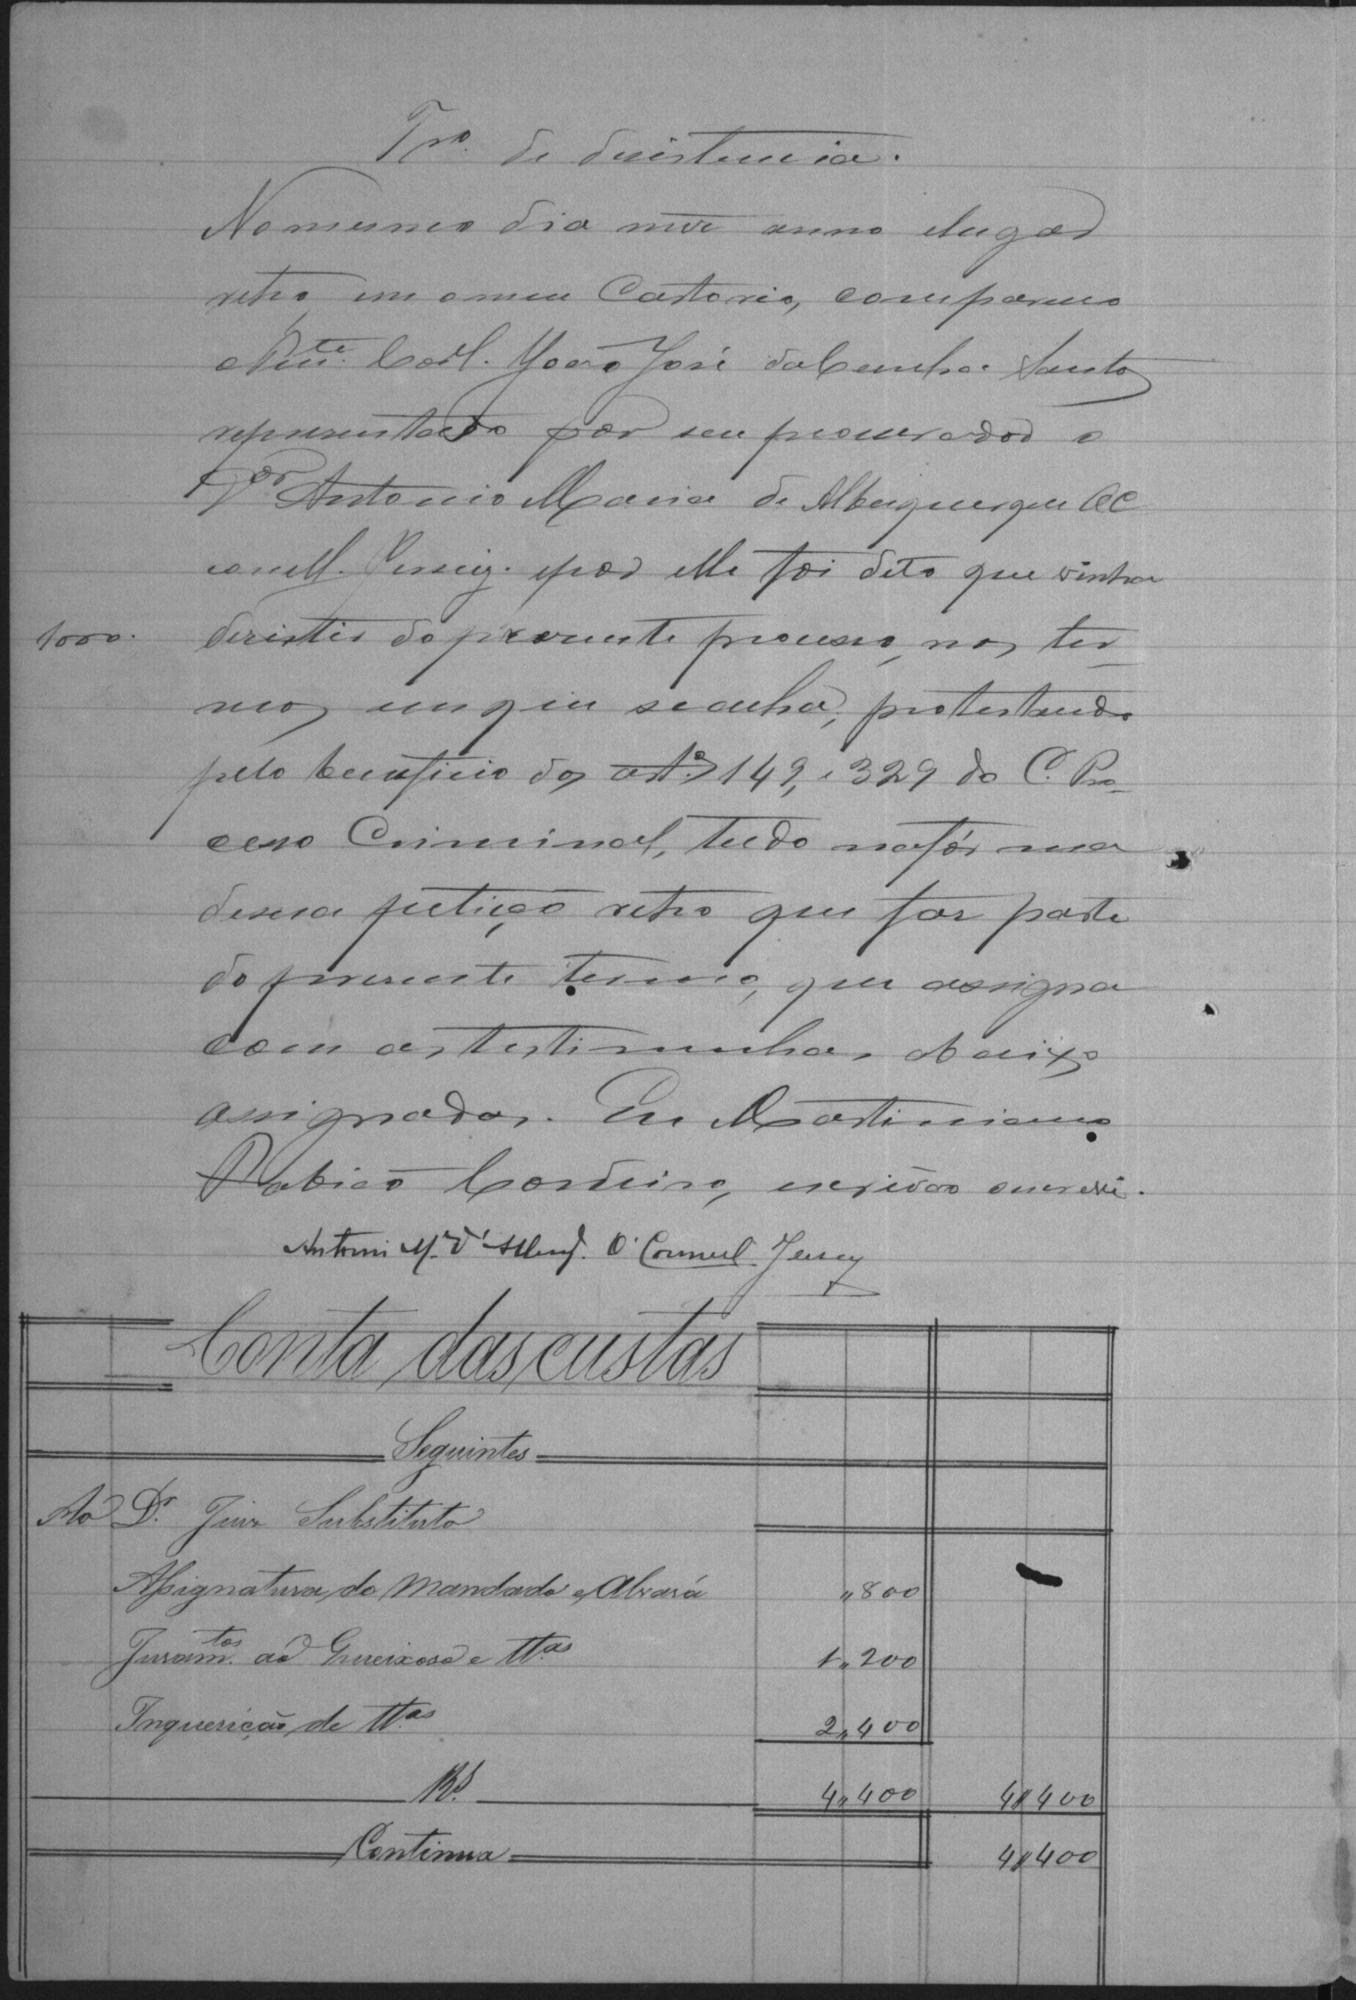 Tr.º de desistencia.
No mesmo dia mez anno e lugar
retro, em o meu Cartorio, compareceo
João José da Cunha Santos
representado por seu procurador o
Dor Antonio Maria de Albuquerque OC
conell. Jersey. e por elle foi dito que vinha
1000. desistir do presente processo, nos ter-
mos em que se acha, protestando
pelo beneficio dos art.ºs 149, e 329 do C. Pro-
cesso Criminal, tudo na fórma
dessa petição retro que faz parte
do presente termo, que assigna
com as testimunhas abaixo
assignadas. Eu Martiniano
Rabico Cordeiro, escrivão escrevi.
Antonio M. d'Albuq. O'Connell Jersey
Conta das custas
Seguintes
Ao Dr. Juiz Substituto
Assignatura do Mandado e Alvará ,,800
Juram.tos ao Queixoso e tt.as 1,,200
Inquerição de tt.as 2,,400
Rs. 4,,400 4,,400
Continua 4,,400